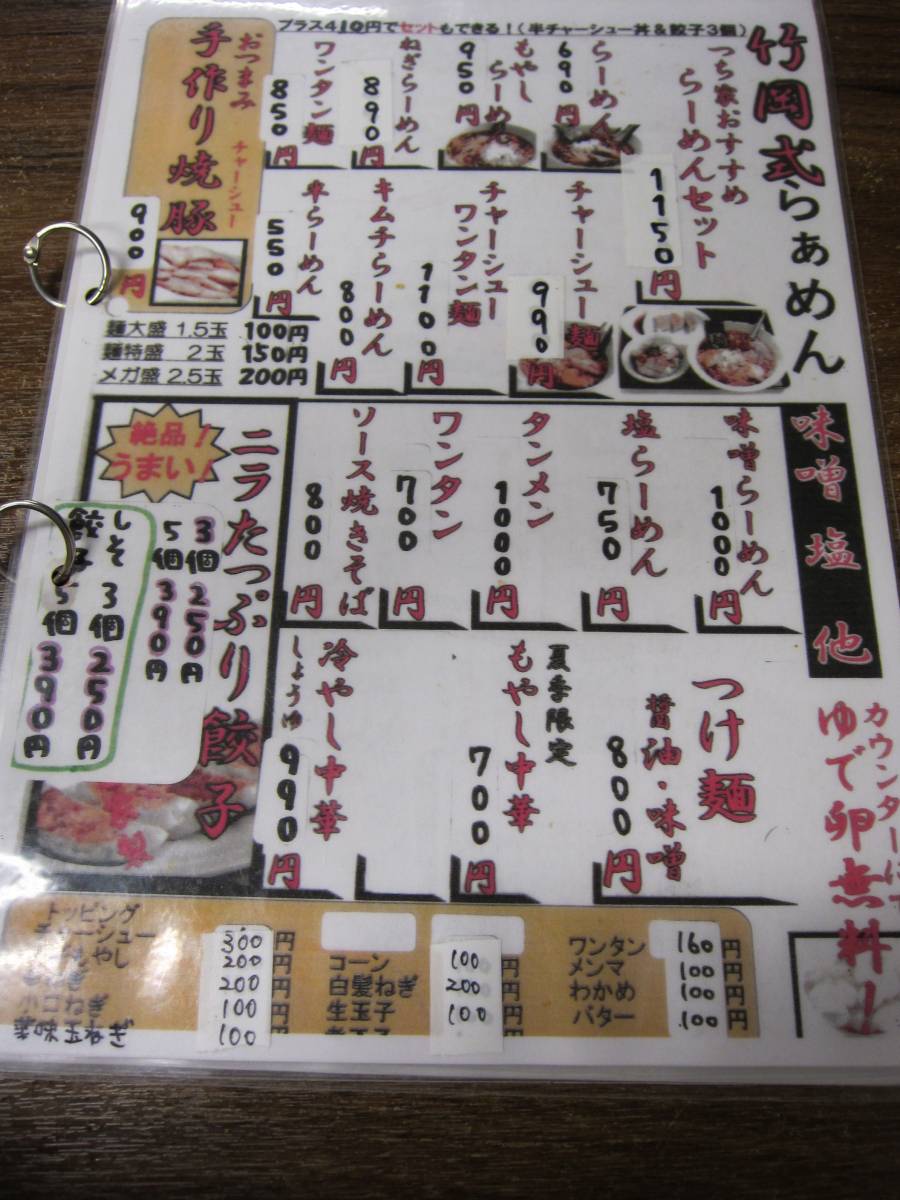 プラス410円でセットもできる!(半チャーシュー丼&餃子3個)
竹岡式らぁめん
つち家おすすめ
らーめんセット
1150円
らーめん
690円
もやし
らーめん
950円
ねぎらーめん
890円
ワンタン麺
850円
チャーシュー
麺
990円
チャーシュー
ワンタン麺
1100円
キムチらーめん
800円
半らーめん
550円
おつまみ
手作り焼豚
チャーシュー
900円
麺大盛 1.5玉 100円
麺特盛 2玉 150円
メガ盛 2.5玉 200円
味噌 塩 他
味噌らーめん
1000円
塩らーめん
750円
タンメン
1000円
ワンタン
700円
ソース焼きそば
800円
つけ麺
醤油・味噌
800円
夏季限定
もやし中華
700円
冷やし中華
しょうゆ
990円
絶品!
うまい!
ニラたっぷり餃子
3個 250円
5個 390円
しそ 3個 250円
餃子 5個 390円
カウンターにて
ゆで卵無料!
トッピング
チャーシュー 300円
もやし 200円
200円
小口ねぎ 100円
薬味玉ねぎ 100
コーン 100円
白髪ねぎ 200円
生玉子 100円
ワンタン 160円
メンマ 100円
わかめ 100円
バター 100円